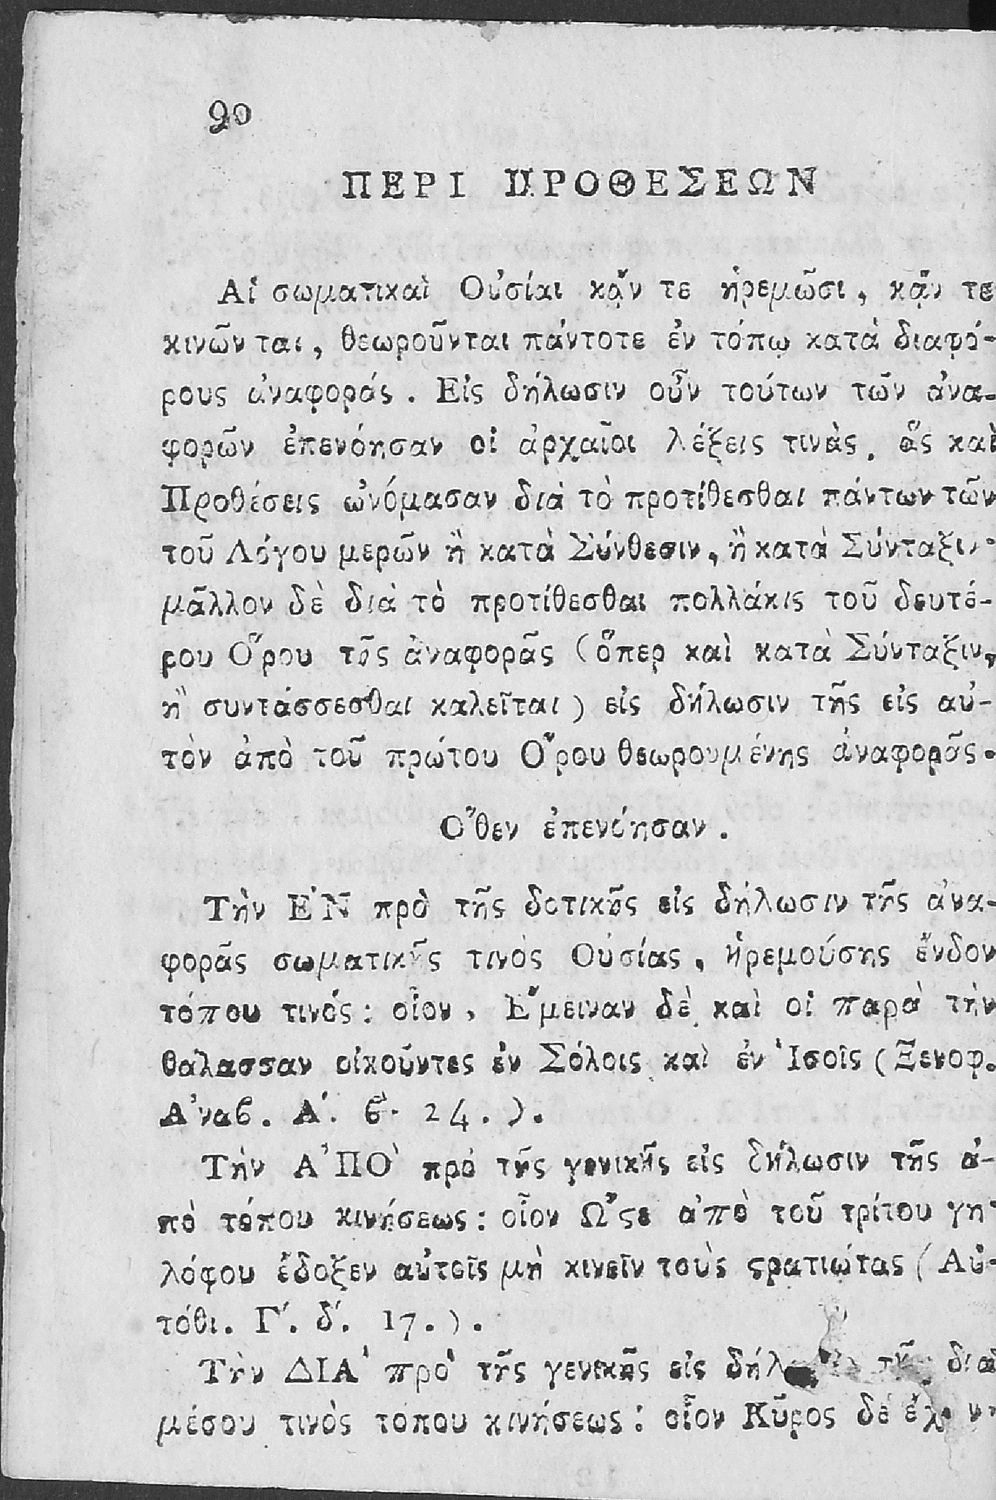 90
ΠΕΡΙ ΠΡΟΘΕΣΕΩΝ
Αἱ σωματικαὶ Οὐσίαι κᾄν τε ἠρεμῶσι, κᾄν τε
κινῶνται, θεωροῦνται πάντοτε ἐν τόπῳ κατὰ διαφό-
ρους ἀναφοράς. Εἰς δήλωσιν οὖν τούτων τῶν ἀνα-
φορῶν ἐπενόησαν οἱ ἀρχαῖοι λέξεις τινὰς, ἃς καὶ
Προθέσεις ὠνόμασαν διὰ τὸ προτίθεσθαι πάντων τῶν
τοῦ Λόγου μερῶν ἢ κατὰ Σύνθεσιν, ἢ κατὰ Σύνταξιν·
μᾶλλον δὲ διὰ τὸ προτίθεσθαι πολλάκις τοῦ δευτέ-
ρου Ὅρου τῆς ἀναφορᾶς (ὅπερ καὶ κατὰ Σύνταξιν,
ἢ συντάσσεσθαι καλεῖται) εἰς δήλωσιν τῆς εἰς αὐ-
τὸν ἀπὸ τοῦ πρώτου Ὅρου θεωρουμένης ἀναφορᾶς.
Ὅθεν ἐπενόησαν.
Τὴν ἘΝ πρὸ τῆς δοτικῆς εἰς δήλωσιν τῆς ἀνα-
φορᾶς σωματικῆς τινὸς Οὐσίας, ἠρεμούσης ἔνδον
τόπου τινός: οἷον, Ἔμειναν δὲ καὶ οἱ παρὰ τὴν
θάλασσαν οἰκοῦντες ἐν Σόλοις καὶ ἐν Ἰσοῖς (Ξενοφ.
Ἀναϐ. Α΄. ϐ΄. 24.).
Τὴν ἈΠῸ πρὸ τῆς γενικῆς εἰς δήλωσιν τῆς ἀ-
πὸ τόπου κινήσεως: οἷον Ὥϛε ἀπὸ τοῦ τρίτου γη-
λόφου ἔδοξεν αὐτοῖς μὴ κινεῖν τοὺς ϛρατιώτας (Αὐ-
τόθι. Γ΄. δ΄. 17.).
Τὴν ΔΙᾺ πρὸ τῆς γενικῆς εἰς τῆς διὰ
μέσου τινὸς τόπου κινήσεως: οἷον Κῦρος δὲ